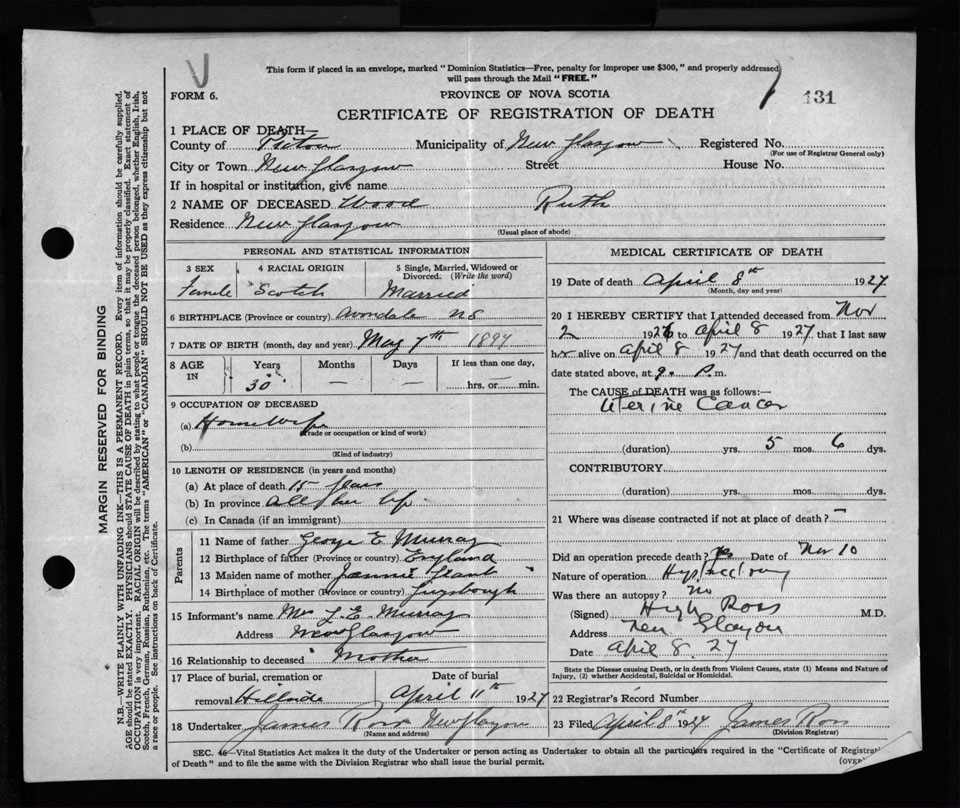 This form if placed in an envelope, marked "Dominion Statistics—Free, penalty for improper use $300," and properly addressed
will pass through the Mail "FREE."
FORM 6.
PROVINCE OF NOVA SCOTIA
131
CERTIFICATE OF REGISTRATION OF DEATH
1 PLACE OF DEATH—
County of Pictou Municipality of New Glasgow Registered No.
(For use of Registrar General only)
City or Town New Glasgow Street House No.
If in hospital or institution, give name
2 NAME OF DECEASED Wood Ruth
Residence New Glasgow
(Usual place of abode)
PERSONAL AND STATISTICAL INFORMATION
3 SEX 4 RACIAL ORIGIN 5 Single, Married, Widowed or
Divorced. (Write the word)
Female Scotch Married
6 BIRTHPLACE (Province or country) Avondale NS
7 DATE OF BIRTH (month, day and year) May 7th 1897
8 AGE Years Months Days If less than one day,
IN 30 — — hrs. or min.
9 OCCUPATION OF DECEASED
(a) Housewife
(Trade or occupation or kind of work)
(b)
(Kind of industry)
10 LENGTH OF RESIDENCE (in years and months)
(a) At place of death 15 years
(b) In province All of her life
(c) In Canada (if an immigrant)
Parents
11 Name of father George E Murray
12 Birthplace of father (Province or country) England
13 Maiden name of mother Jannie
14 Birthplace of mother (Province or country) Guysborough
15 Informant's name Mrs G. E. Murray
Address New Glasgow
16 Relationship to deceased Mother
17 Place of burial, cremation or Date of burial
removal Hillside April 11th 1927
18 Undertaker James Ross New Glasgow
(Name and address)
MEDICAL CERTIFICATE OF DEATH
19 Date of death April 8th 1927
(Month, day and year)
20 I HEREBY CERTIFY that I attended deceased from Nov
2 1926 to April 8 1927 that I last saw
her alive on April 8 1927 and that death occurred on the
date stated above, at 9. P.m.
The CAUSE of DEATH was as follows:—
Uterine Cancer
(duration) yrs. 5 mos. 6 dys.
CONTRIBUTORY
(duration) yrs. mos. dys.
21 Where was disease contracted if not at place of death? —
Did an operation precede death? Yes Date of Nov 10
Nature of operation Hysterectomy
Was there an autopsy? No
(Signed) Hugh Ross M.D.
Address New Glasgow
Date April 8. 27
State the Disease causing Death, or in death from Violent Causes, state (1) Means and Nature of
Injury, (2) whether Accidental, Suicidal or Homicidal.
22 Registrar's Record Number
23 Filed April 8th 1927 James Ross
(Division Registrar)
SEC. 46—Vital Statistics Act makes it the duty of the Undertaker or person acting as Undertaker to obtain all the particulars required in the "Certificate of Registration
of Death" and to file the same with the Division Registrar who shall issue the burial permit.
(over)
MARGIN RESERVED FOR BINDING
N.B.—WRITE PLAINLY WITH UNFADING INK—THIS IS A PERMANENT RECORD. Every item of information should be carefully supplied.
AGE should be stated EXACTLY. PHYSICIANS should STATE CAUSE OF DEATH in plain terms, so that it may be properly classified. Exact statement of
OCCUPATION is very important. RACIAL ORIGIN will be described by stating to what people or tongue the deceased person belonged, whether English, Irish,
Scotch, French, German, Russian, Ruthenian, etc. The terms "AMERICAN" or "CANADIAN" SHOULD NOT BE USED as they express citizenship but not
a race or people. See instructions on back of Certificate.